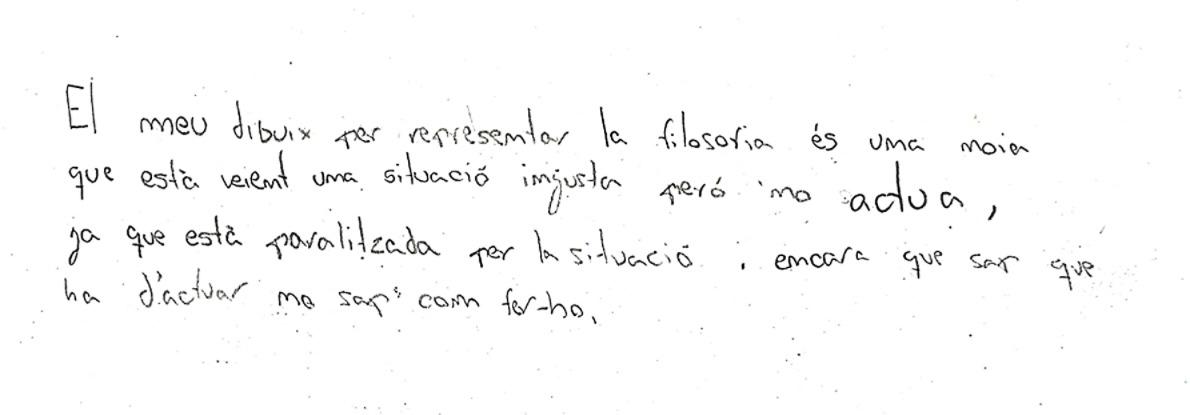 El meu dibuix per representar la filosofia és una noia
que està veient una situació injusta peró no actua,
ja que està paralitzada per la situació i encara que sap que
ha d'actuar no sap com fer-ho.